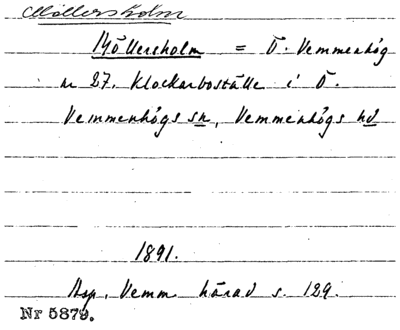 Möllersholm
Möllersholm = Ö. Vemmenhög
nr 27. Klockarboställe i Ö.
Vemmenhögs sn, Vemmenhögs hd
1891.
Asp. Vemm härad s. 129.
Nr 5879.